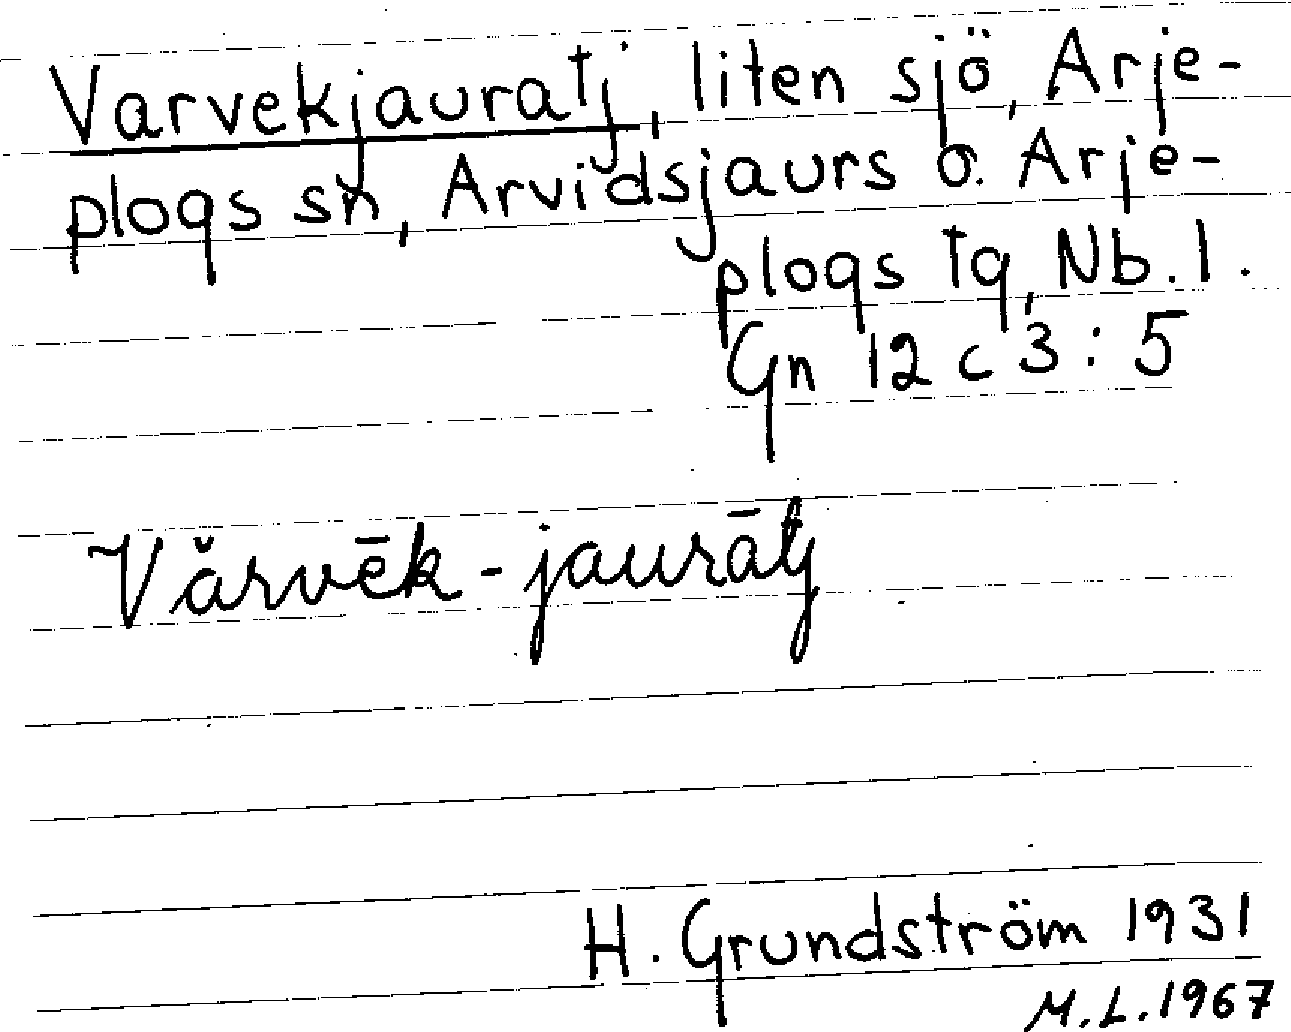 Varvekjauratj, liten sjö, Arje-
plogs sn, Arvidsjaurs o. Arje-
plogs tg, Nb. l.
Gn 12 c 3 : 5
Vărvēk-jaurātj
H. Grundström 1931
M.L. 1967